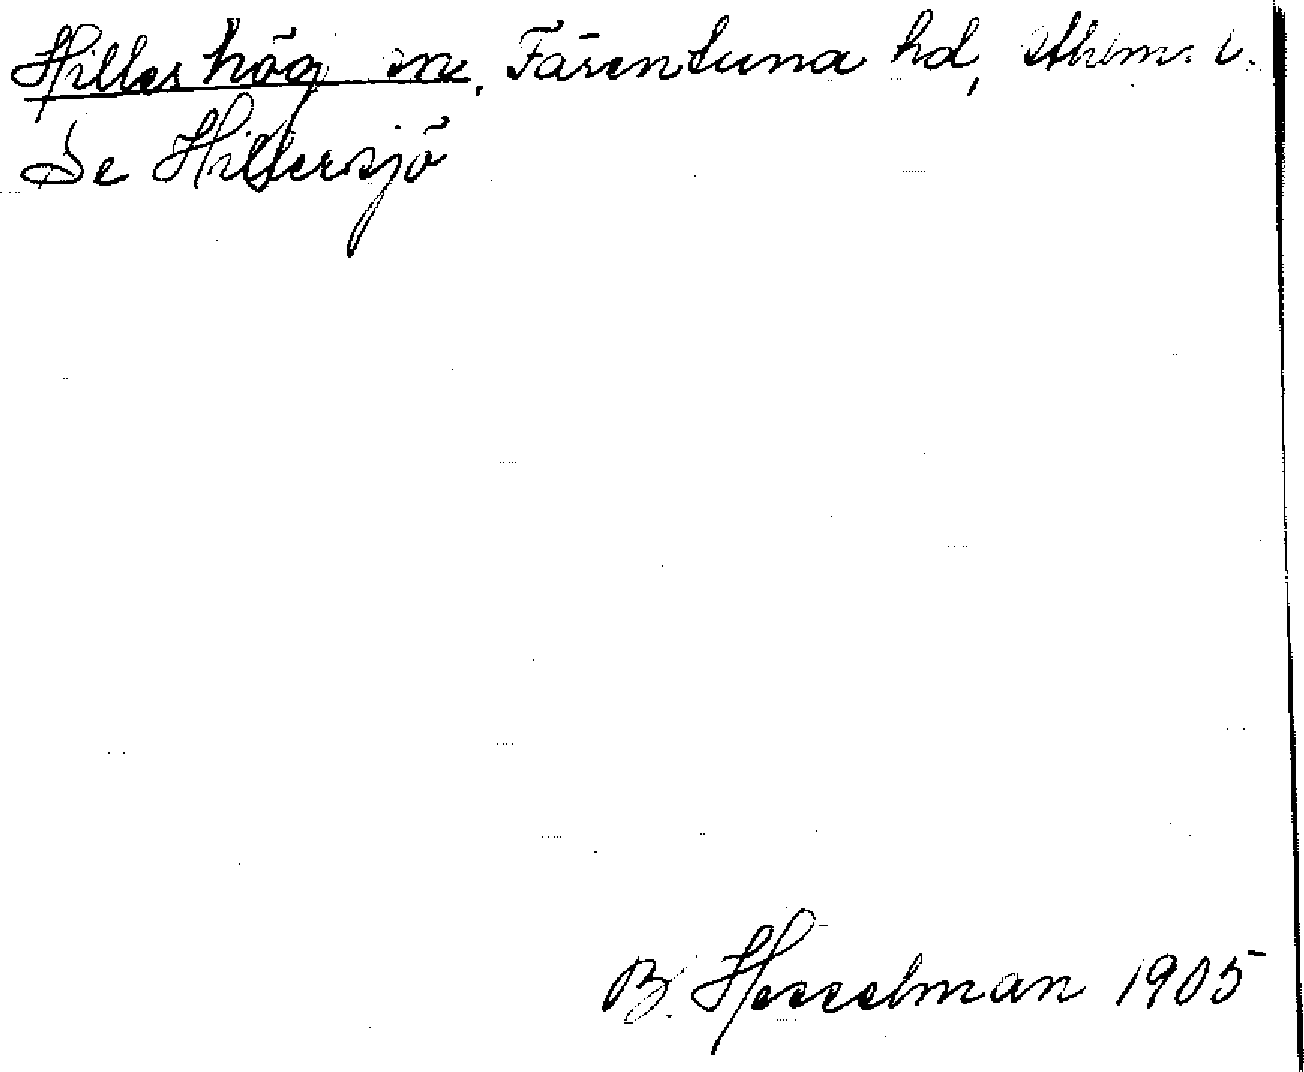 Hilleshög sn, Färentuna hd, Sthlms l.
Se Hillersjö
B. Hesselman 1905